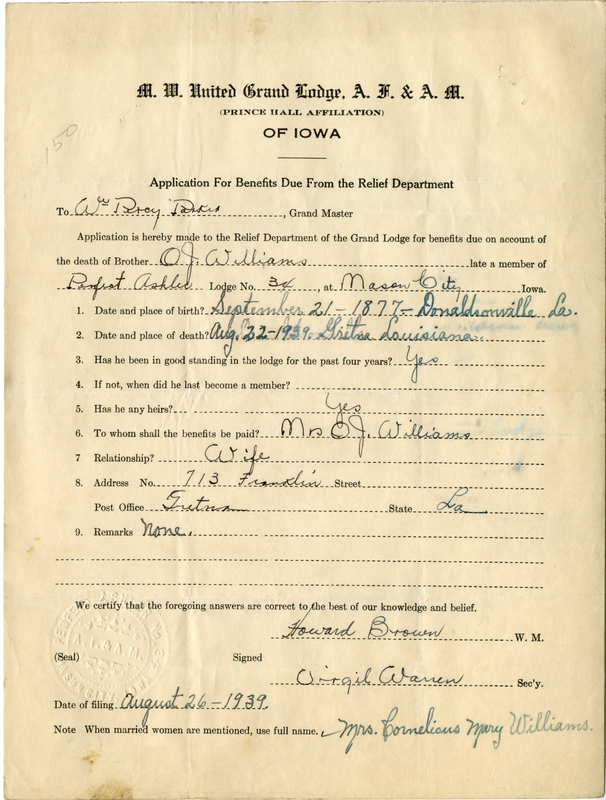 150
M. W. United Grand Lodge, A. F. & A. M.
(PRINCE HALL AFFILIATION)
OF IOWA
Application For Benefits Due From the Relief Department
To Wm Percy Baker, Grand Master
Application is hereby made to the Relief Department of the Grand Lodge for benefits due on account of
the death of Brother O. J. Williams late a member of
Perfect Ashler Lodge No. 34, at Mason City Iowa.
1. Date and place of birth? September 21-1877- Donaldsonville La.
2. Date and place of death? Aug. 22-1939. Gretna Louisiana.
3. Has he been in good standing in the lodge for the past four years? Yes
4. If not, when did he last become a member?
5. Has he any heirs? Yes
6. To whom shall the benefits be paid? Mrs O. J. Williams
7 Relationship? Wife
8. Address No. 713 Franklin Street
Post Office Gretna State La
9. Remarks None.
We certify that the foregoing answers are correct to the best of our knowledge and belief.
Howard Brown W. M.
(Seal) Signed
Virgil Warren Sec'y.
Date of filing August 26-1939.
Note When married women are mentioned, use full name. Mrs. Cornelious Mary Williams.